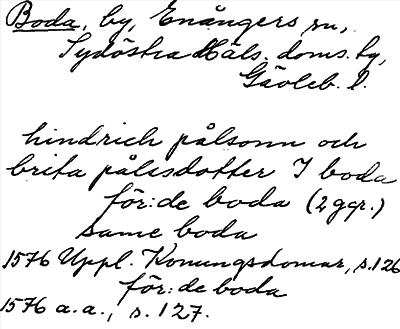 Boda, by, Enångers sn,
Sydöstra Häls. doms. hg,
Gävleb. l.
hindrich pålsonn och
brita pålssdotter J boda
för: de boda (2 ggr.)
same boda
1576 Uppl. Konungsdomar, s. 126
för: de boda
1576 a. a., s. 127.